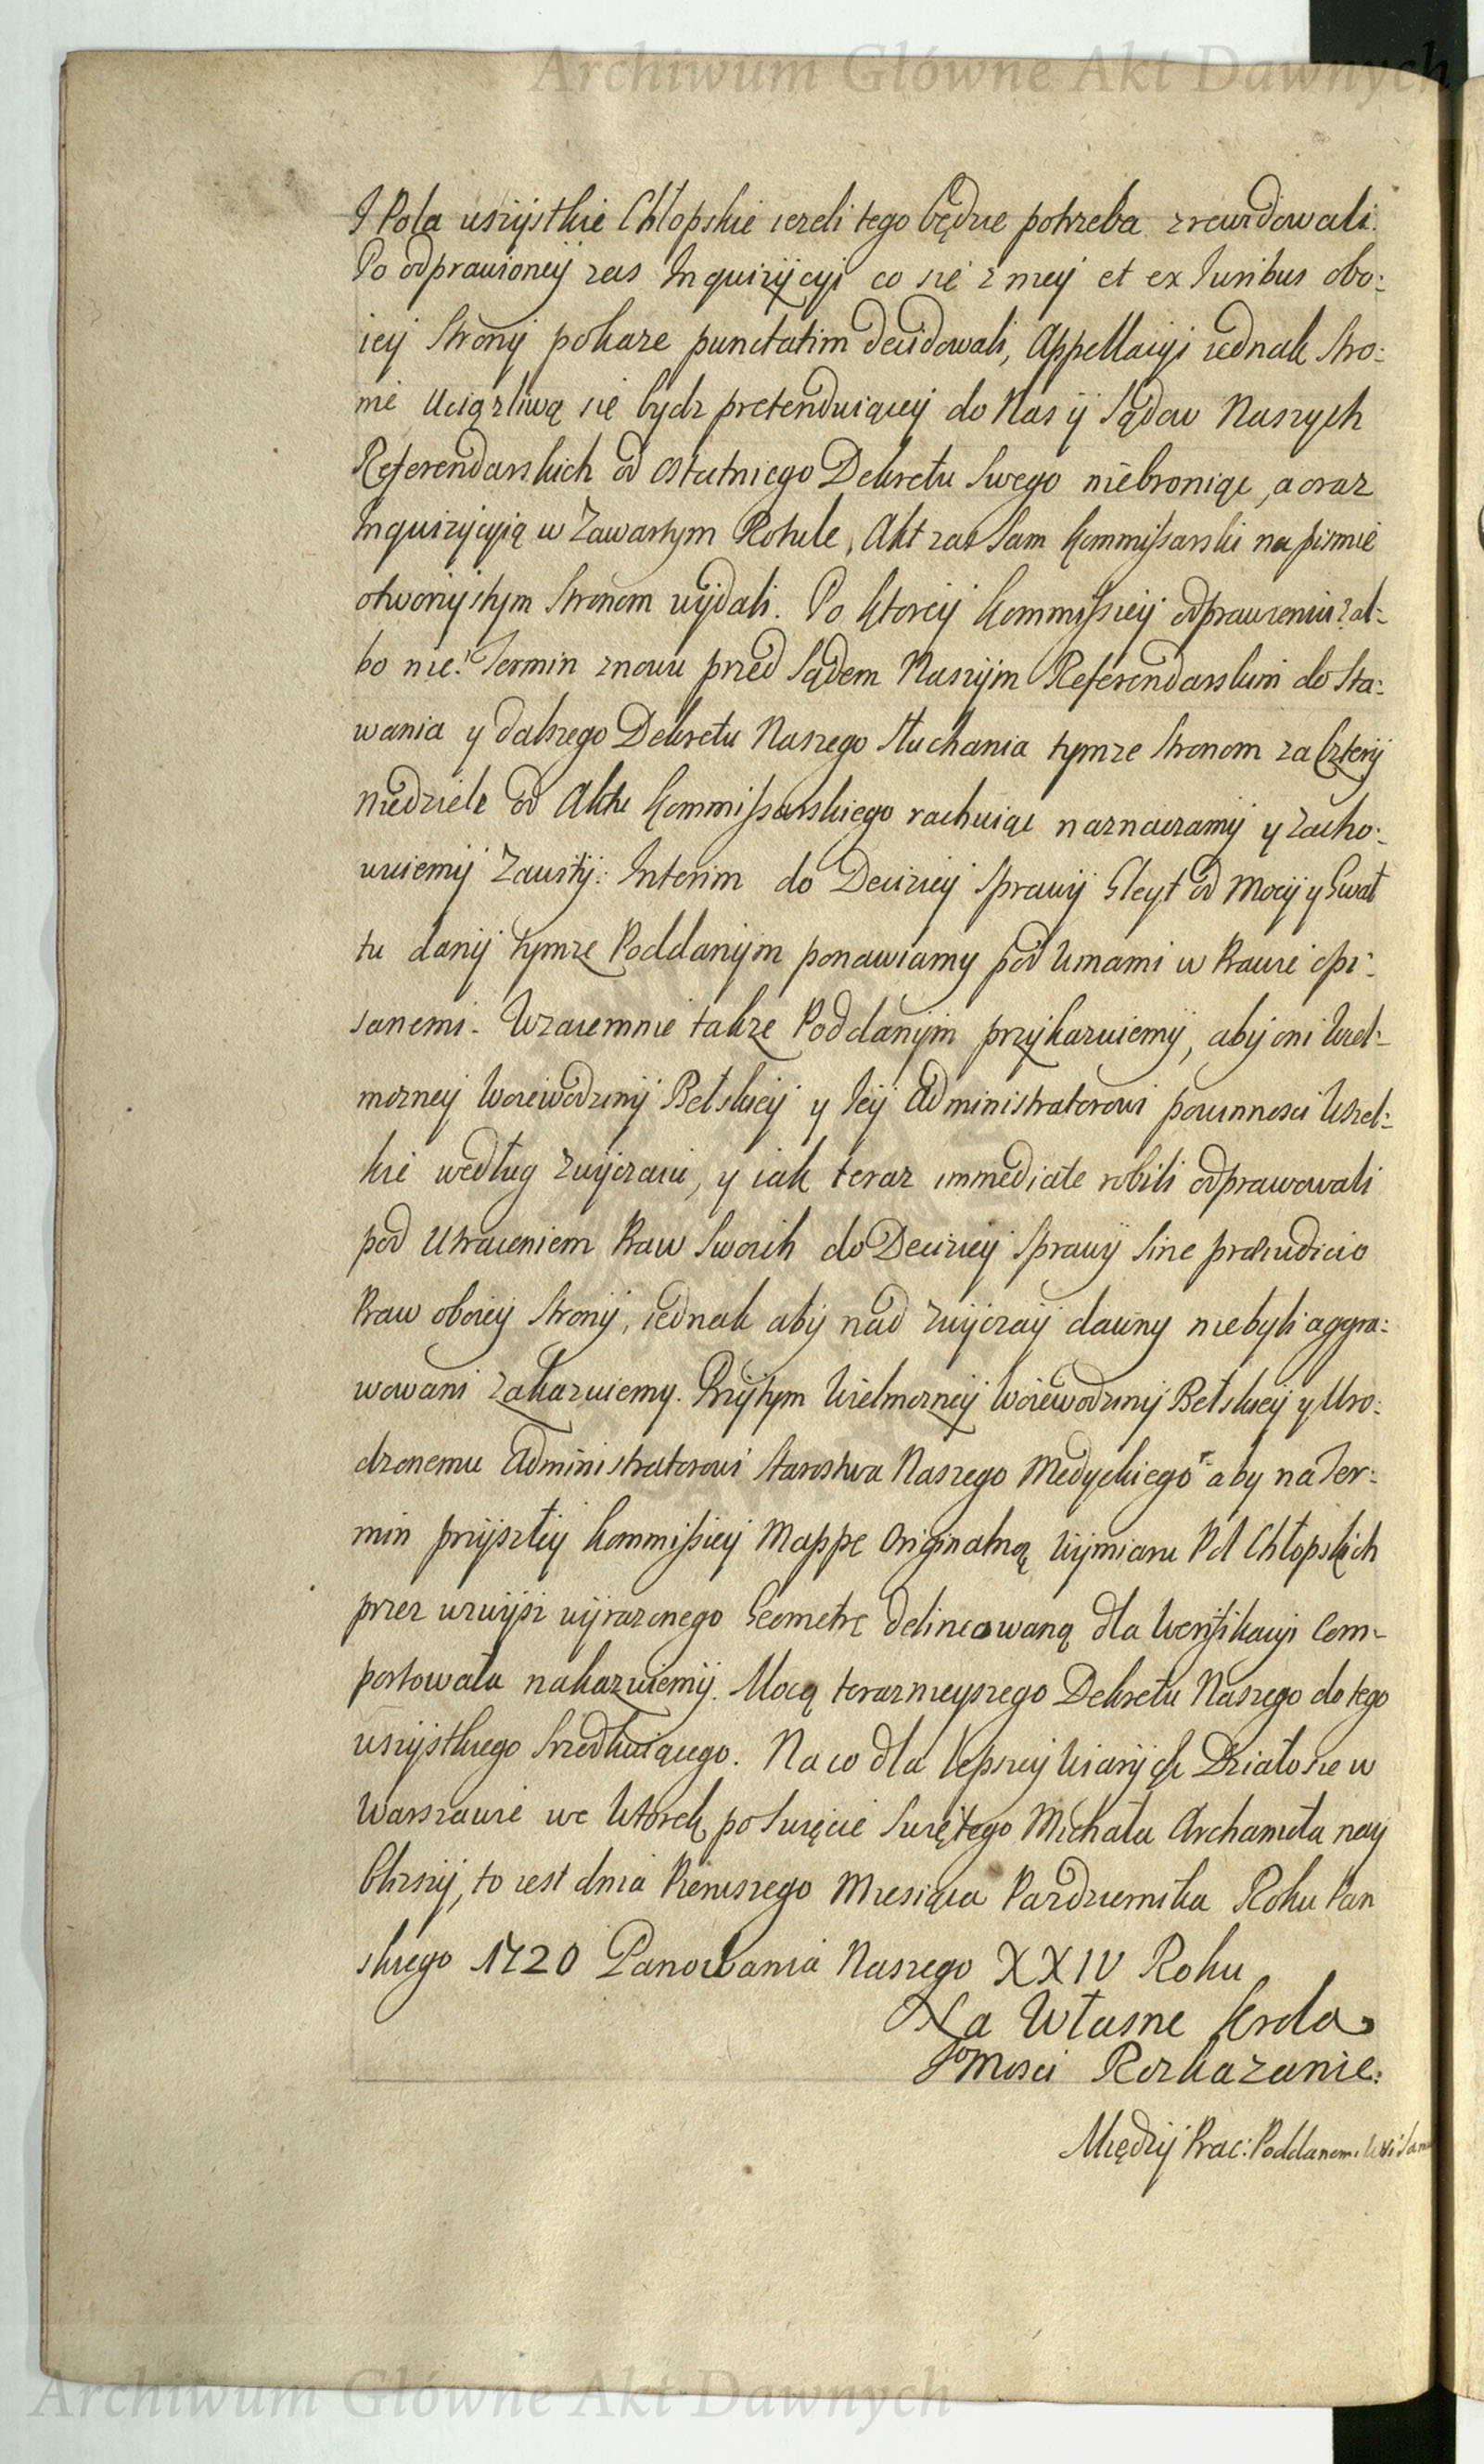 Archiwum Główne Akt Dawnych
I Pola wszystkie Chłopskie iezeli tego będzie potrzeba zrewidowali.
Po odprawioney zas Inquizycyi co się z niey et ex Iuribus obo:
iey Strony pokaze punctatim decidowali, Appellacyi iednak Stro:
nie Uciązliwą się bydz pretenduiącey do Nas y Sądow Naszych
Referendarskich od ostatniego Dekretu Swego niebroniąc, a oraz
Inquizycyią w Zawartym Rotule, Akt zas Sam Kommissarski na pismie
otworzystym Stronom wydali. Po ktorey Kommissiey odprawieniu? al-
bo nie? Termin znowu przed Sądem Naszym Referendarskim do Sta:
wania y dalszego Dekretu Naszego Słuchania tymze Stronom za Cztery
niedziele od Aktu Kommissarskiego rachuiąc naznaczamy y zacho:
wuiemy Zawity: Interim do Decizyey Sprawy Gleyt od Mocy y Gwał
tu dany tymze Poddanym ponawiamy pod Winami w Prawie opi:
sanemi. Wzaiemnie takze Poddanym przykazuiemy, aby oni Wiel:
mozney Woiewodziny Bełskiey y Iey Administratorowi powinnosci Wszel:
kie według zwyczaiu, y iak teraz immediate robili odprawowali
pod Utraceniem Praw Swoich do Decizyey Sprawy Sine præiudicio
Praw oboiey Strony, iednak aby nad zwyczay dawny niebyli aggra:
wowani zakazuiemy. Przytym Wielmozney Woiewodziny Bełskiey y Uro:
dzonemu Administratorowi Starostwa Naszego Medyckiego aby na Ter:
min przyszłey Kommissiey Mappę Originalną Wymiaru Pol Chłopskich
przez wzwysz wyrazonego Geometrę delineowaną dla Weryfikacyi Com-
portowała nakazuiemy. Mocą teraznieyszego Dekretu Naszego do tego
wszystkiego Srzedkuiącego. Na co dla lepszey Wiary &c Działo się w
Warszawie we Wtorek po Swięcie Swiętego Michała Archanioła nay
blizszy, to iest dnia Pierwszego Miesiąca Pazdziernika Roku Pan
skiego 1720 Panowania Naszego XXIV Roku
Na Własne Krola
Jomosci Rozkazanie:
Między Prac: Poddanemi
Archiwum Główne Akt Dawnych